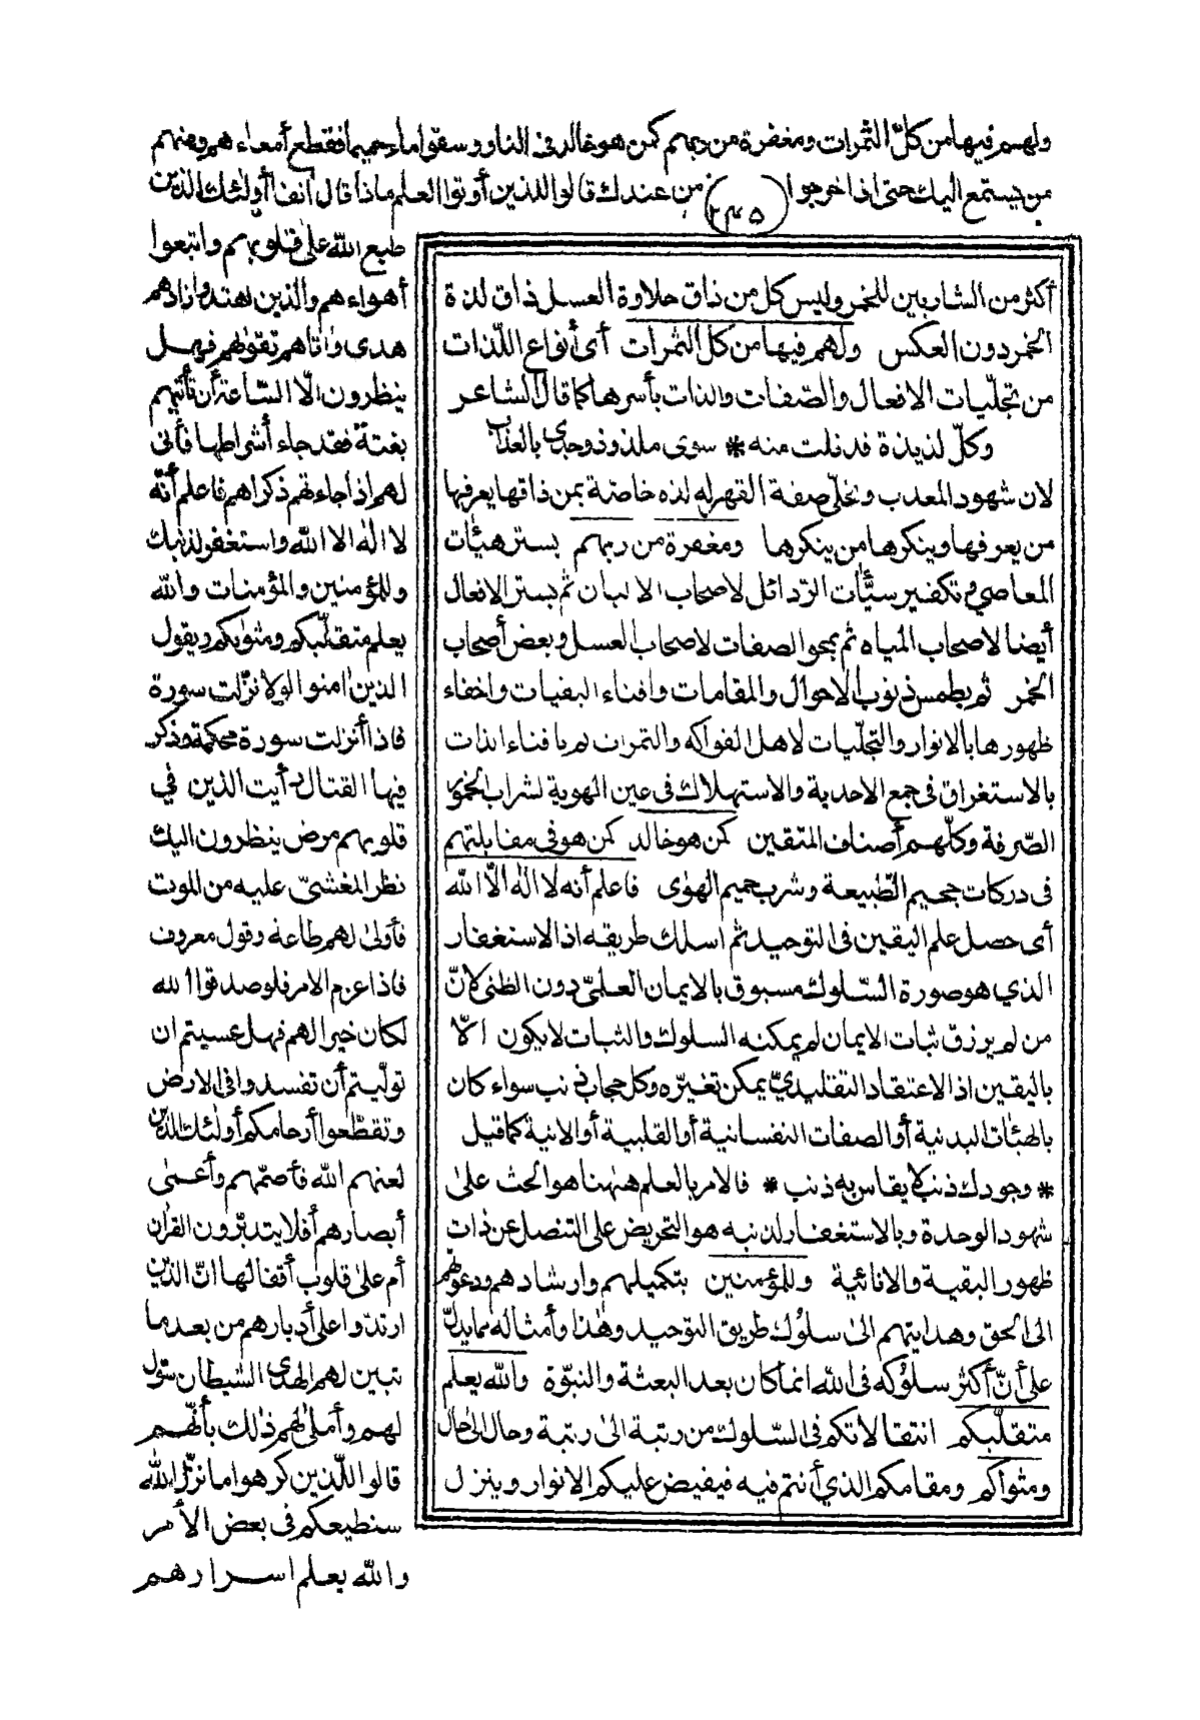 ولهم فيها من كلّ الثمرات ومغفرة من ربهم كمن هو خالد في النار وسقوا ماء حميما فقطع أمعاءهم ومنهم
من يستمع اليك حتى اذا خرجوا من عندك قالوا للذين أوتوا العلم ماذا قال آنفا أولئك الذين
٢٤٥
طبع الله على قلوبهم واتبعوا
أهواءهم والذين اهتدوا زادهم
هدى وآتاهم تقوٰهم فهل
ينظرون الّا السّاعة أن تأتيهم
بغتة فقد جاء أشراطها فأنى
لهم اذا جاءتهم ذكراهم فاعلم أنّه
لا الٰه الا اللّه واستغفر لذنبك
وللمؤمنين والمؤمنات واللّه
يعلم متقلّبكم ومثوٰيكم ويقول
الذين اٰمنوا لولا نزّلت سورة
فاذا أنزلت سورة محكمة وذكر
فيها القتال رأيت الذين في
قلوبهم مرض ينظرون اليك
نظر المغشىّ عليه من الموت
فأولىٰ لهم طاعة وقول معروف
فاذا عزم الامر فلو صدقوا الله
لكان خيرا لهم فهل عسيتم ان
تولّيتم أن تفسدوا في الارض
وتقطّعوا أرحامكم أولئك الذين
لعنهم اللّه فأصمّهم وأعمى
أبصارهم أفلا يتدبّرون القراٰن
أم علىٰ قلوب أقفالها انّ الذين
ارتدّوا على أدبارهم من بعد ما
تبين لهم الهدى الشيطان سوّل
لهم وأملىٰ لهم ذٰلك بأنّهم
قالوا للّذين كرهوا ما نزّل اللّه
سنطيعكم في بعض الأمر
واللّه يعلم اسرارهم
أكثر من الشاربين للخمر وليس كل من ذاق حلاوة العسل ذاق لذة
الخمر دون العكس ولهم فيها من كل الثمرات أى أنواع اللّذات
من تجلّيات الافعال والصّفات والذات بأسرها كما قال الشاعر
وكلّ لذيذة قد نلت منه * سوى ملذوذ وجدى بالعذاب
لان شهود المعذب وتجلّى صفة القهر له لذه خاصّة بمن ذاقها يعرفها
من يعرفها وينكرها من ينكرها ومغفرة من ربهم بستر هيآت
المعاصي وتكفير سيّآت الرّذائل لاصحاب الالبان ثم بستر الافعال
أيضا لاصحاب المياه ثم بمحو الصفات لاصحاب العسل وبعض أصحاب
الخمر ثم بطمس ذنوب الاحوال والمقامات وافناء البقيات واخفاء
ظهورها بالانوار والتجلّيات لاهل الفواكه والثمرات ثم بافناء الذات
بالاستغراق فى جمع الاحدية والاستهلاك فى عين الهوية لشراب الخمور
الصّرفة وكلّهم أصناف المتقين كمن هو خالد كمن هو فى مقابلتهم
فى دركات جحيم الطّبيعة وشرب حميم الهوٰى فاعلم أنه لا الٰه الّا اللّه
أى حصل علم اليقين فى التوحيد ثم اسلك طريقه اذ الاستغفار
الذي هو صورة السّلوك مسبوق بالايمان العلمىّ دون الظنى لانّ
من لم يرزق ثبات الايمان لم يمكنه السلوك والثبات لا يكون الّا
باليقين اذ الاعتقاد التقليدىّ يمكن تغيّره وكل حجاب ذنب سواء كان
بالهيٰات البدنية أو الصفات النفسانية أو القلبية أو الانية كما قيل
* وجودك ذنب لا يقاس به ذنب * فالامر بالعلم هٰهنا هو الحث علىٰ
شهود الوحدة وبالاستغفار لذنبه هو التحريض على التنصل عن ذات
ظهور البقية والانائية وللمؤمنين بتكميلهم وارشادهم ودعوتهم
الى الحق وهدايتهم الىٰ سلوك طريق التوحيد وهٰذا وأمثاله مما يدلّ
على أنّ أكثر سلوكه فى اللّه انما كان بعد البعثة والنبوّة واللّه يعلم
متقلّبكم انتقالاتكم فى السّلوك من رتبة الىٰ رتبة وحال الىٰ حال
ومثواكم ومقامكم الذي أنتم فيه فيفيض عليكم الانوار وينزل